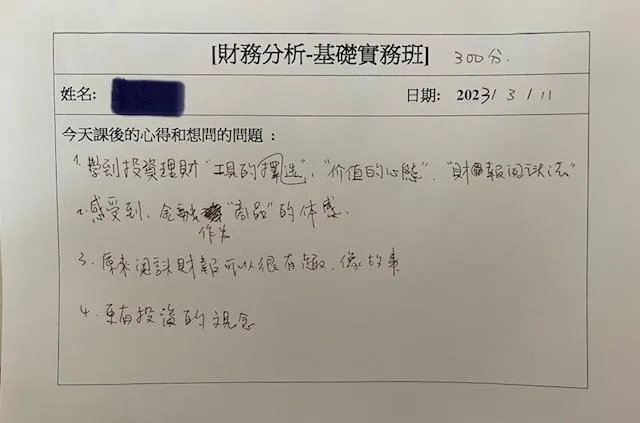 [財務分析-基礎實務班] 300分.
姓名: 日期: 2023/3/11
今天課後的心得和想問的問題：
1. 學到投資理財"工具的擇选"、"价值的心態"、"財報阅读法"
2. 感受到、金融作为"商品"的体感.
3. 原來阅読財報可以很有趣、像故事
4. 更有投資的观念